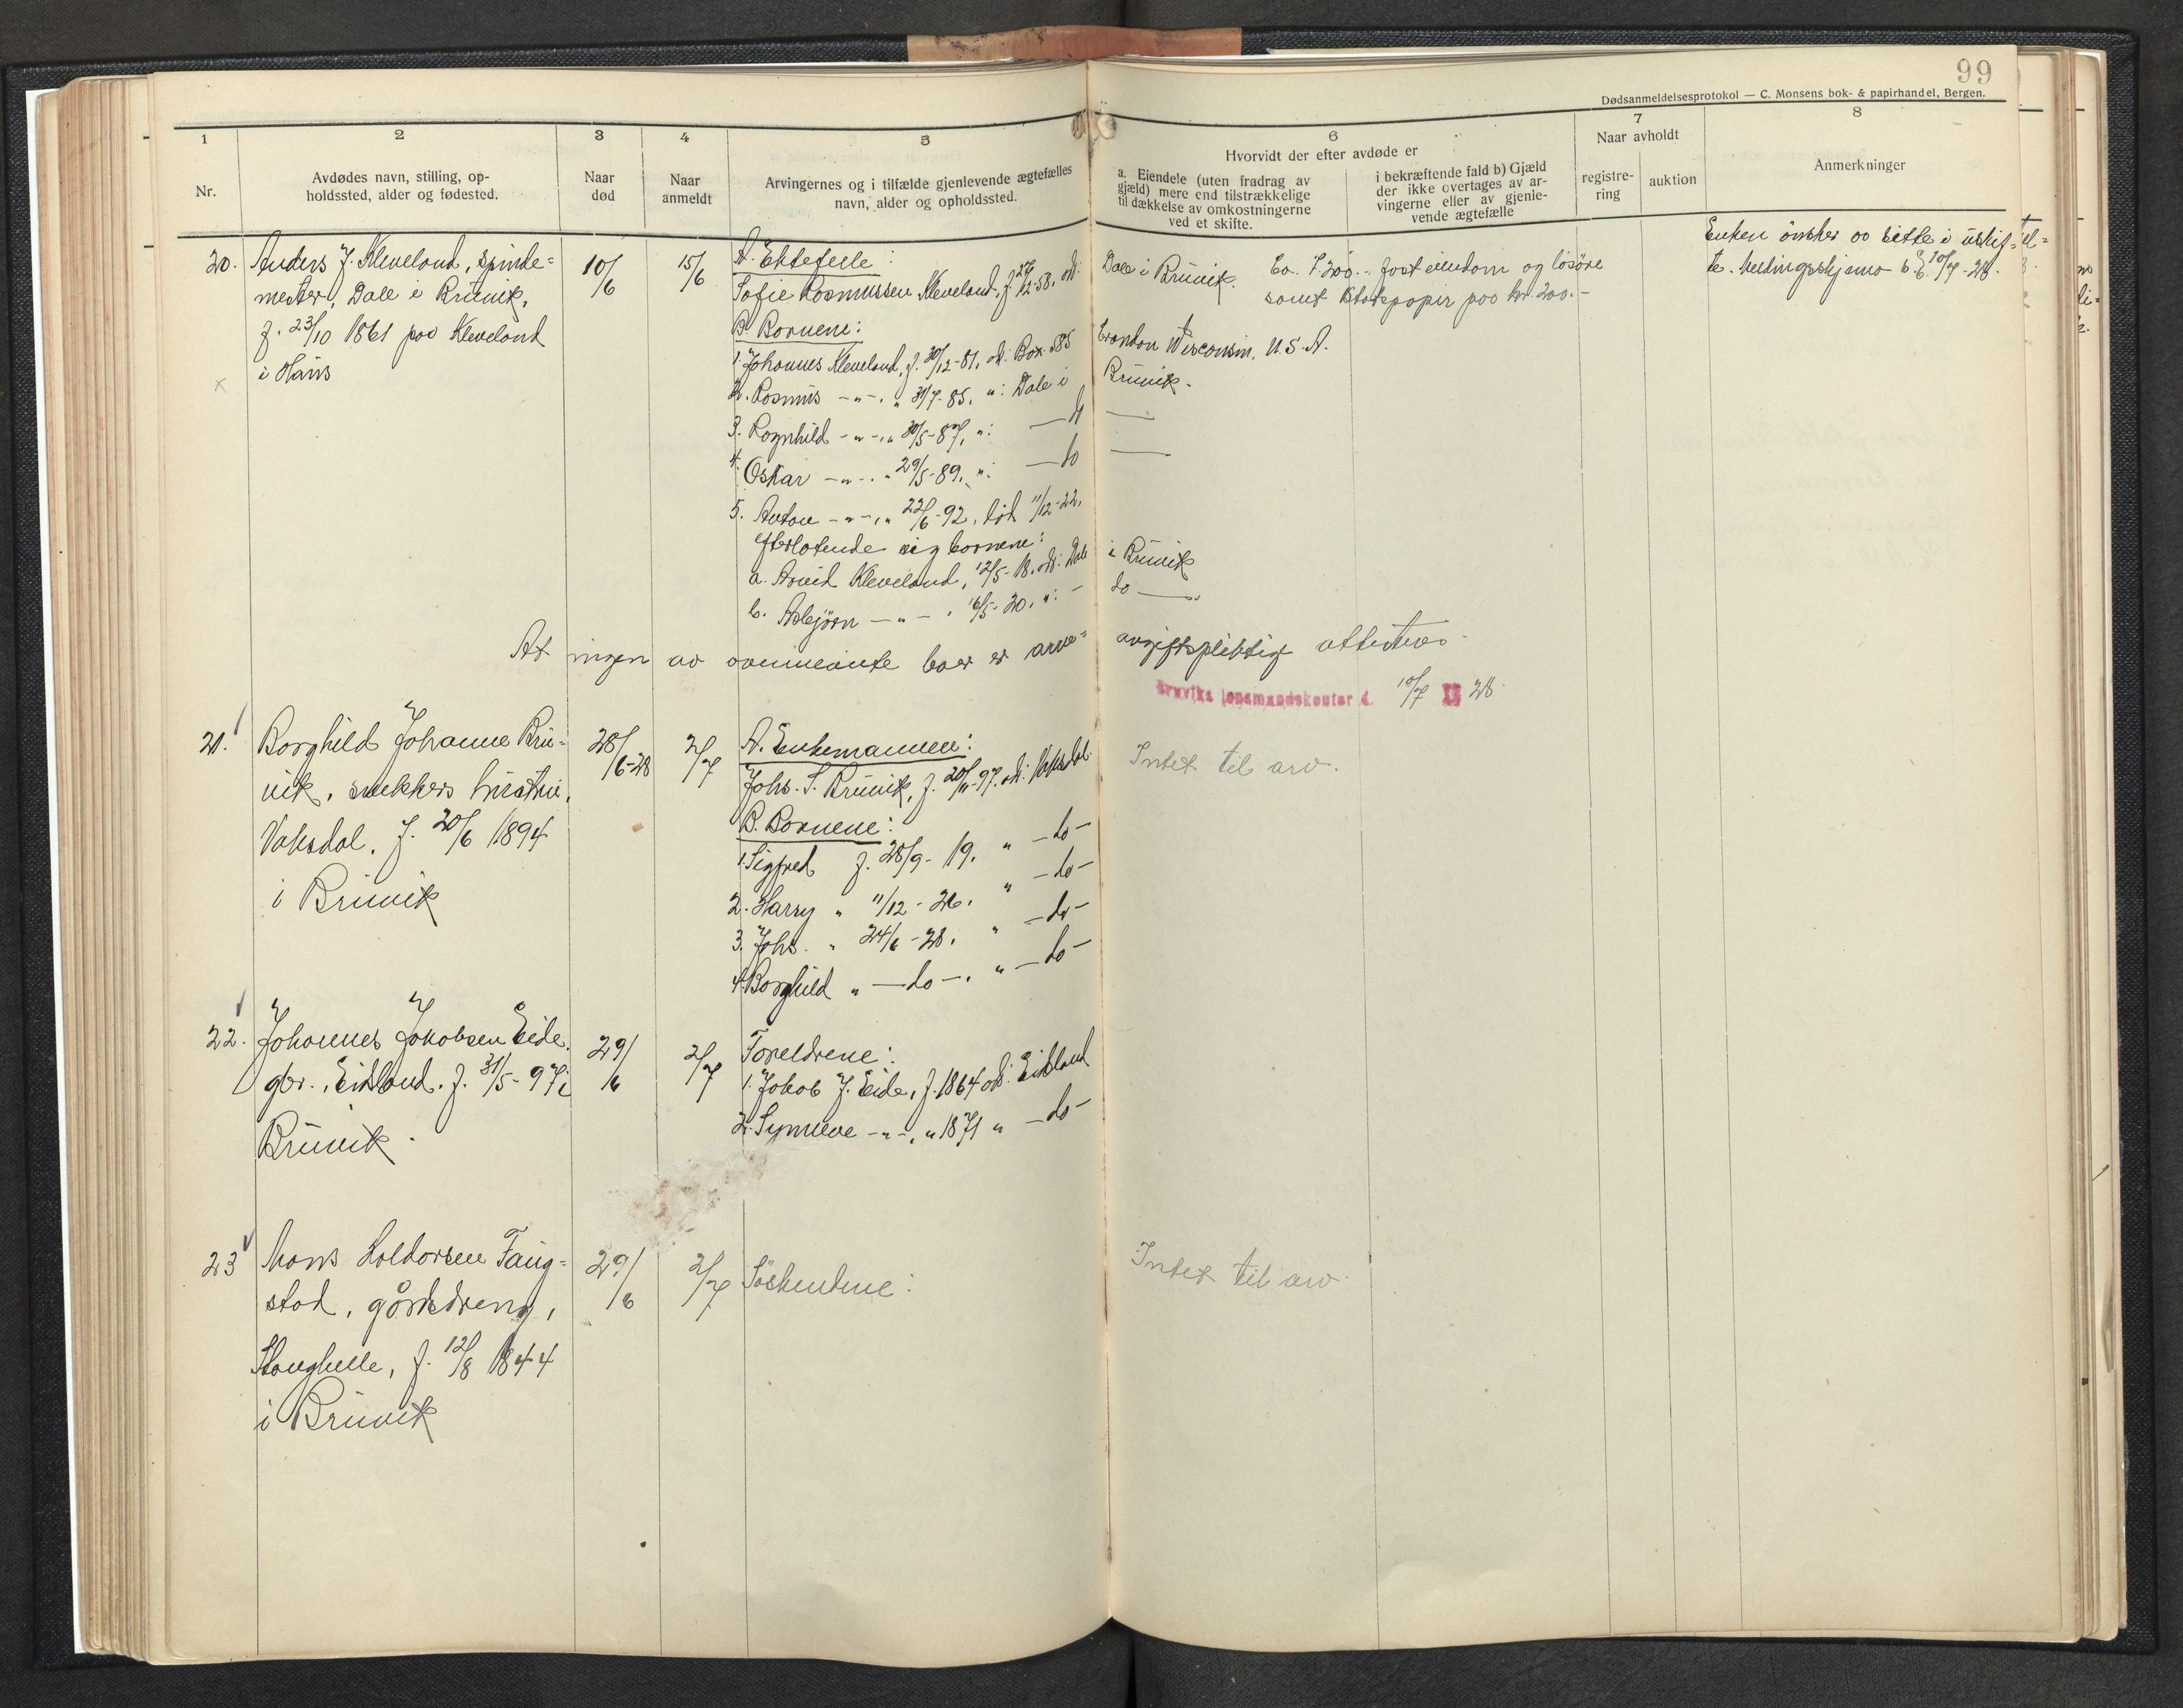 99
Dødsanmeldelsesprotokol — C. Monsens bok- & papirhandel, Bergen.
1
2
3
4
5
6
7
8
Nr.
Avdødes navn, stilling, op-
holdssted, alder og fødested.
Naar
død
Naar
anmeldt
Arvingernes og i tilfælde gjenlevende ægtefælles
navn, alder og opholdssted.
Hvorvidt der efter avdøde er
a. Eiendele (uten fradrag av
gjæld) mere end tilstrækkelige
til dækkelse av omkostningerne
ved et skifte.
i bekræftende fald b) Gjæld
der ikke overtages av ar-
vingerne eller av gjenle-
vende ægtefælle
Naar avholdt
registre-
ring
auktion
Anmerkninger
20. Anders J. Kleveland, spinde=
mester, Dale i Bruvik,
f. 23/10 1861 paa Kleveland
i Haus
10/6
15/6
A. Ektefelle:
Sofie Rasmussen Kleveland, f. 27/12-58, adr: Dale i Bruvik.
B. Barnene:
1. Johannes Kleveland, f. 30/12-81, adr: Box 385 Crandon Wisconsin, U.S.A.
2. Rasmus -"-, " 31/7-85, ": Dale i Bruvik.
3. Ragnhild -"-, " 30/5-87, ": — d —
4. Oskar -"-, " 29/5-89, ": — do —
5. Anton -"-, " 22/6-92, död 11/12-22,
efterlatende sig barnene:
a. Arvid Kleveland, 12/5-18, adr: Dale i Bruvik
b. Asbjörn -"-, 16/5-20, ": - do —
Ca. 7200.- fast eiendom og lösöre
samt Statspapir paa kr 200.-
Enken önsker aa sitte i uskif=
te. Meldingsskjema s.E. 10/7-28.
At ingen av ovennevnte boer er arve= avgiftspliktig attesteres
Bruviks lensmandskontor d. 10/7 19 28.
21. Borghild Johanne Bru=
vik, snekkers hustru,
Vaksdal, f. 20/6 1894
i Bruvik
28/6-28
2/7
A. Enkemannen:
Johs. S. Bruvik, f. 20/11-97. adr: Vaksdal.
B. Barnene:
1. Sigfred f. 28/9-19, " -do-
2. Harry " 11/12-26, " -do-
3. Johs. " 24/6-28, " -do-
4. Borghild " -do-, " -do-
Intet til arv.
22. Johannes Jakobsen Eide.
gbr., Eikland. f. 31/5-97 i
Bruvik.
29/6
2/7
Foreldrene:
1. Jakob J. Eide, f. 1864 adr: Eikland
2. Synneve -"-, " 1871 " -do-
23 Mons Haldorsen Faug=
stad, gårdsdreng,
Stanghelle, f. 12/8 1844
i Bruvik
29/6
2/7
Söskendene:
Intet til arv.